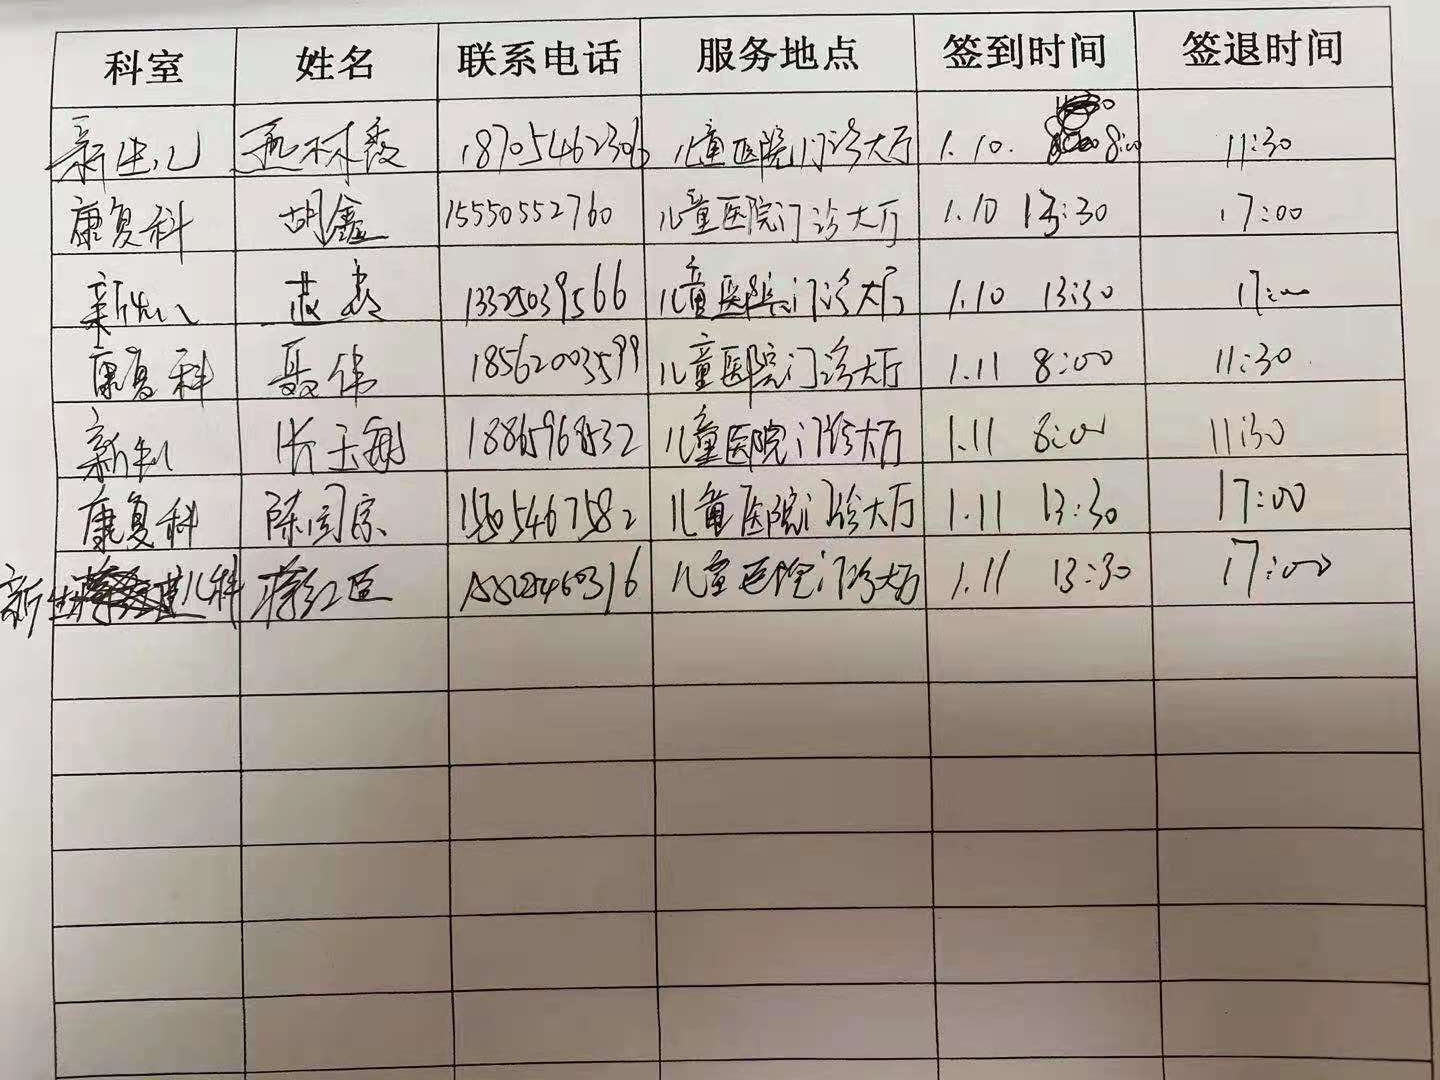 科室 姓名 联系电话 服务地点 签到时间 签退时间
新生儿 孟林秀 18705462306 儿童医院门诊大厅 1.10. 8:00 11:30
康复科 胡鑫 15550552760 儿童医院门诊大厅 1.10 13:30 17:00
新生儿 13325039566 儿童医院门诊大厅 1.10 13:30 17:00
康复科 聂伟 18562003599 儿童医院门诊大厅 1.11 8:00 11:30
新生儿 18865968532 儿童医院门诊大厅 1.11 8:00 11:30
康复科 儿童医院门诊大厅 1.11 13:30 17:00
新生儿科 蒋红臣 儿童医院门诊大厅 1.11 13:30 17:00